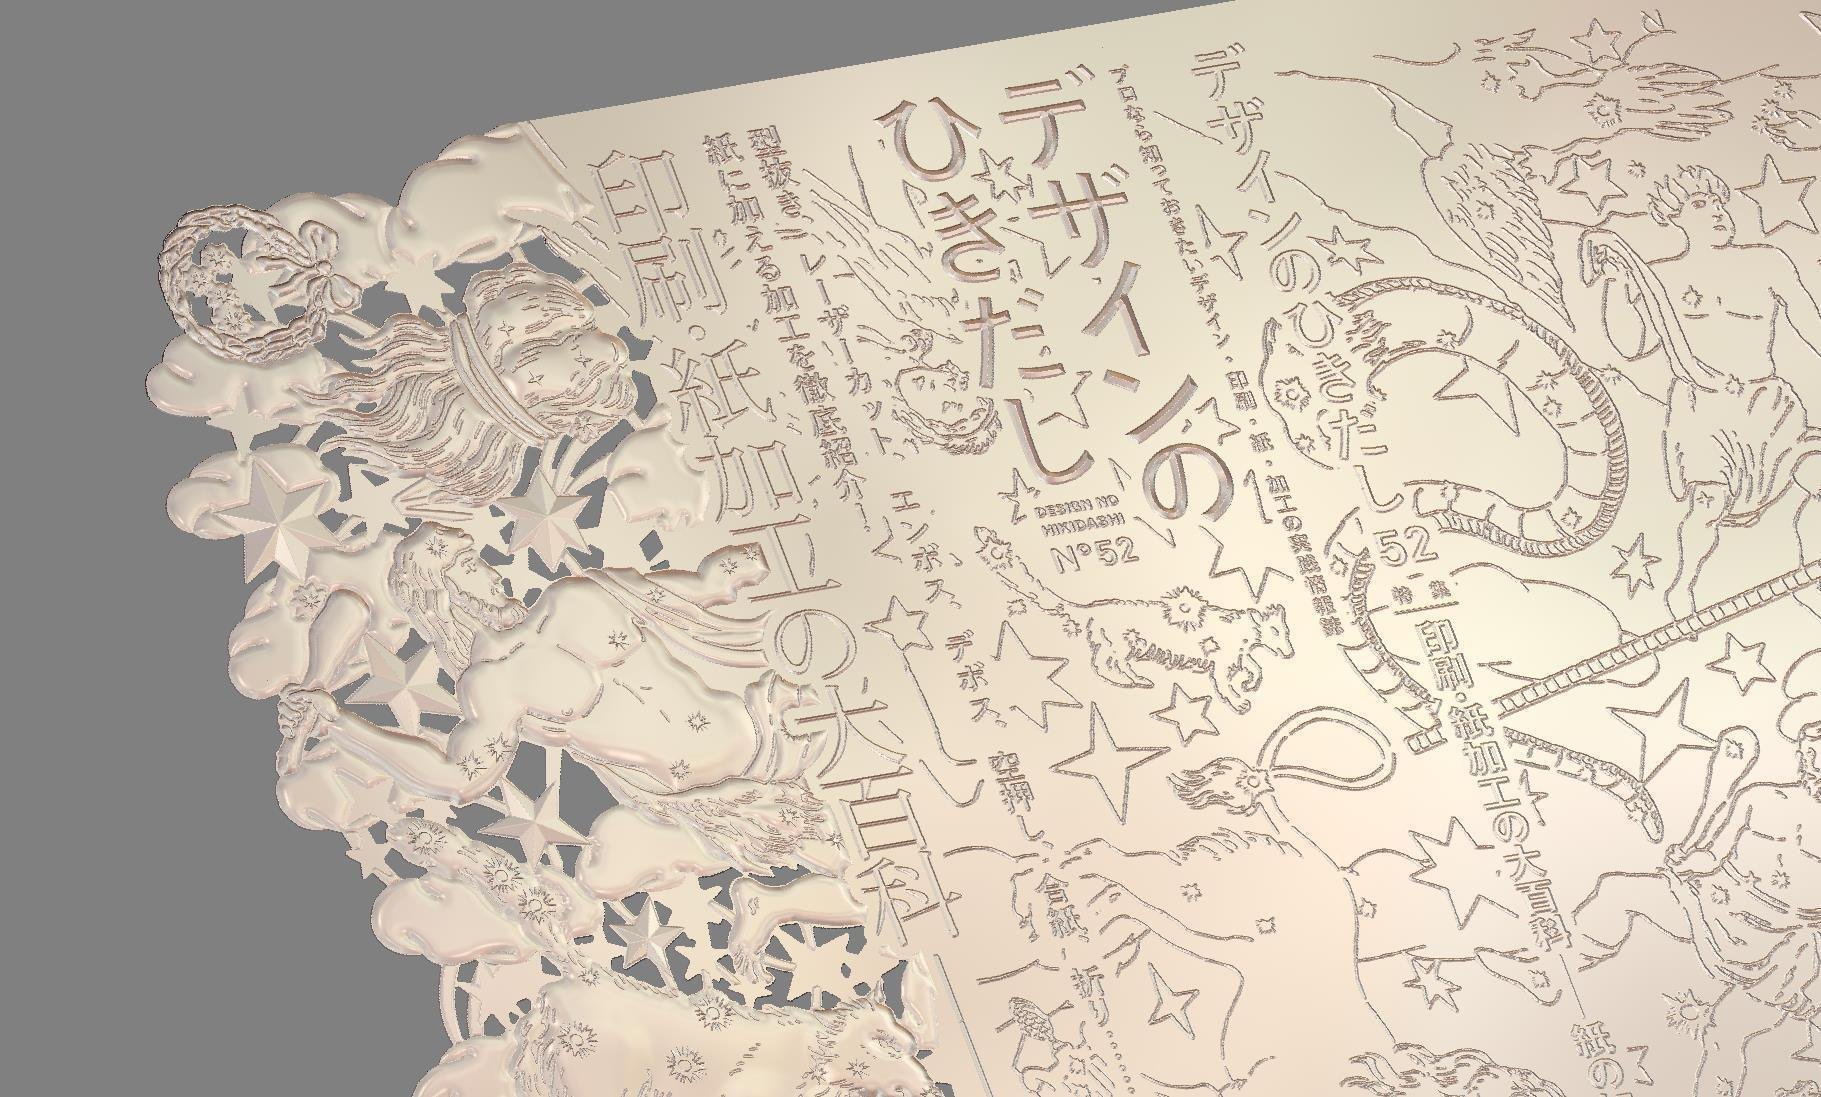 デザインの
ひきだし
DESIGN NO
HIKIDASHI
Nº52
プロなら知っておきたいデザイン・印刷・紙・加工の実践情報誌
デザインのひきだし52
特集
印刷・紙加工の大百科
紙の
型抜き、レーザーカット、エンボス、デボス、空押し、合紙、折り……
紙に加える加工を徹底紹介！
印刷・紙加工の大百科